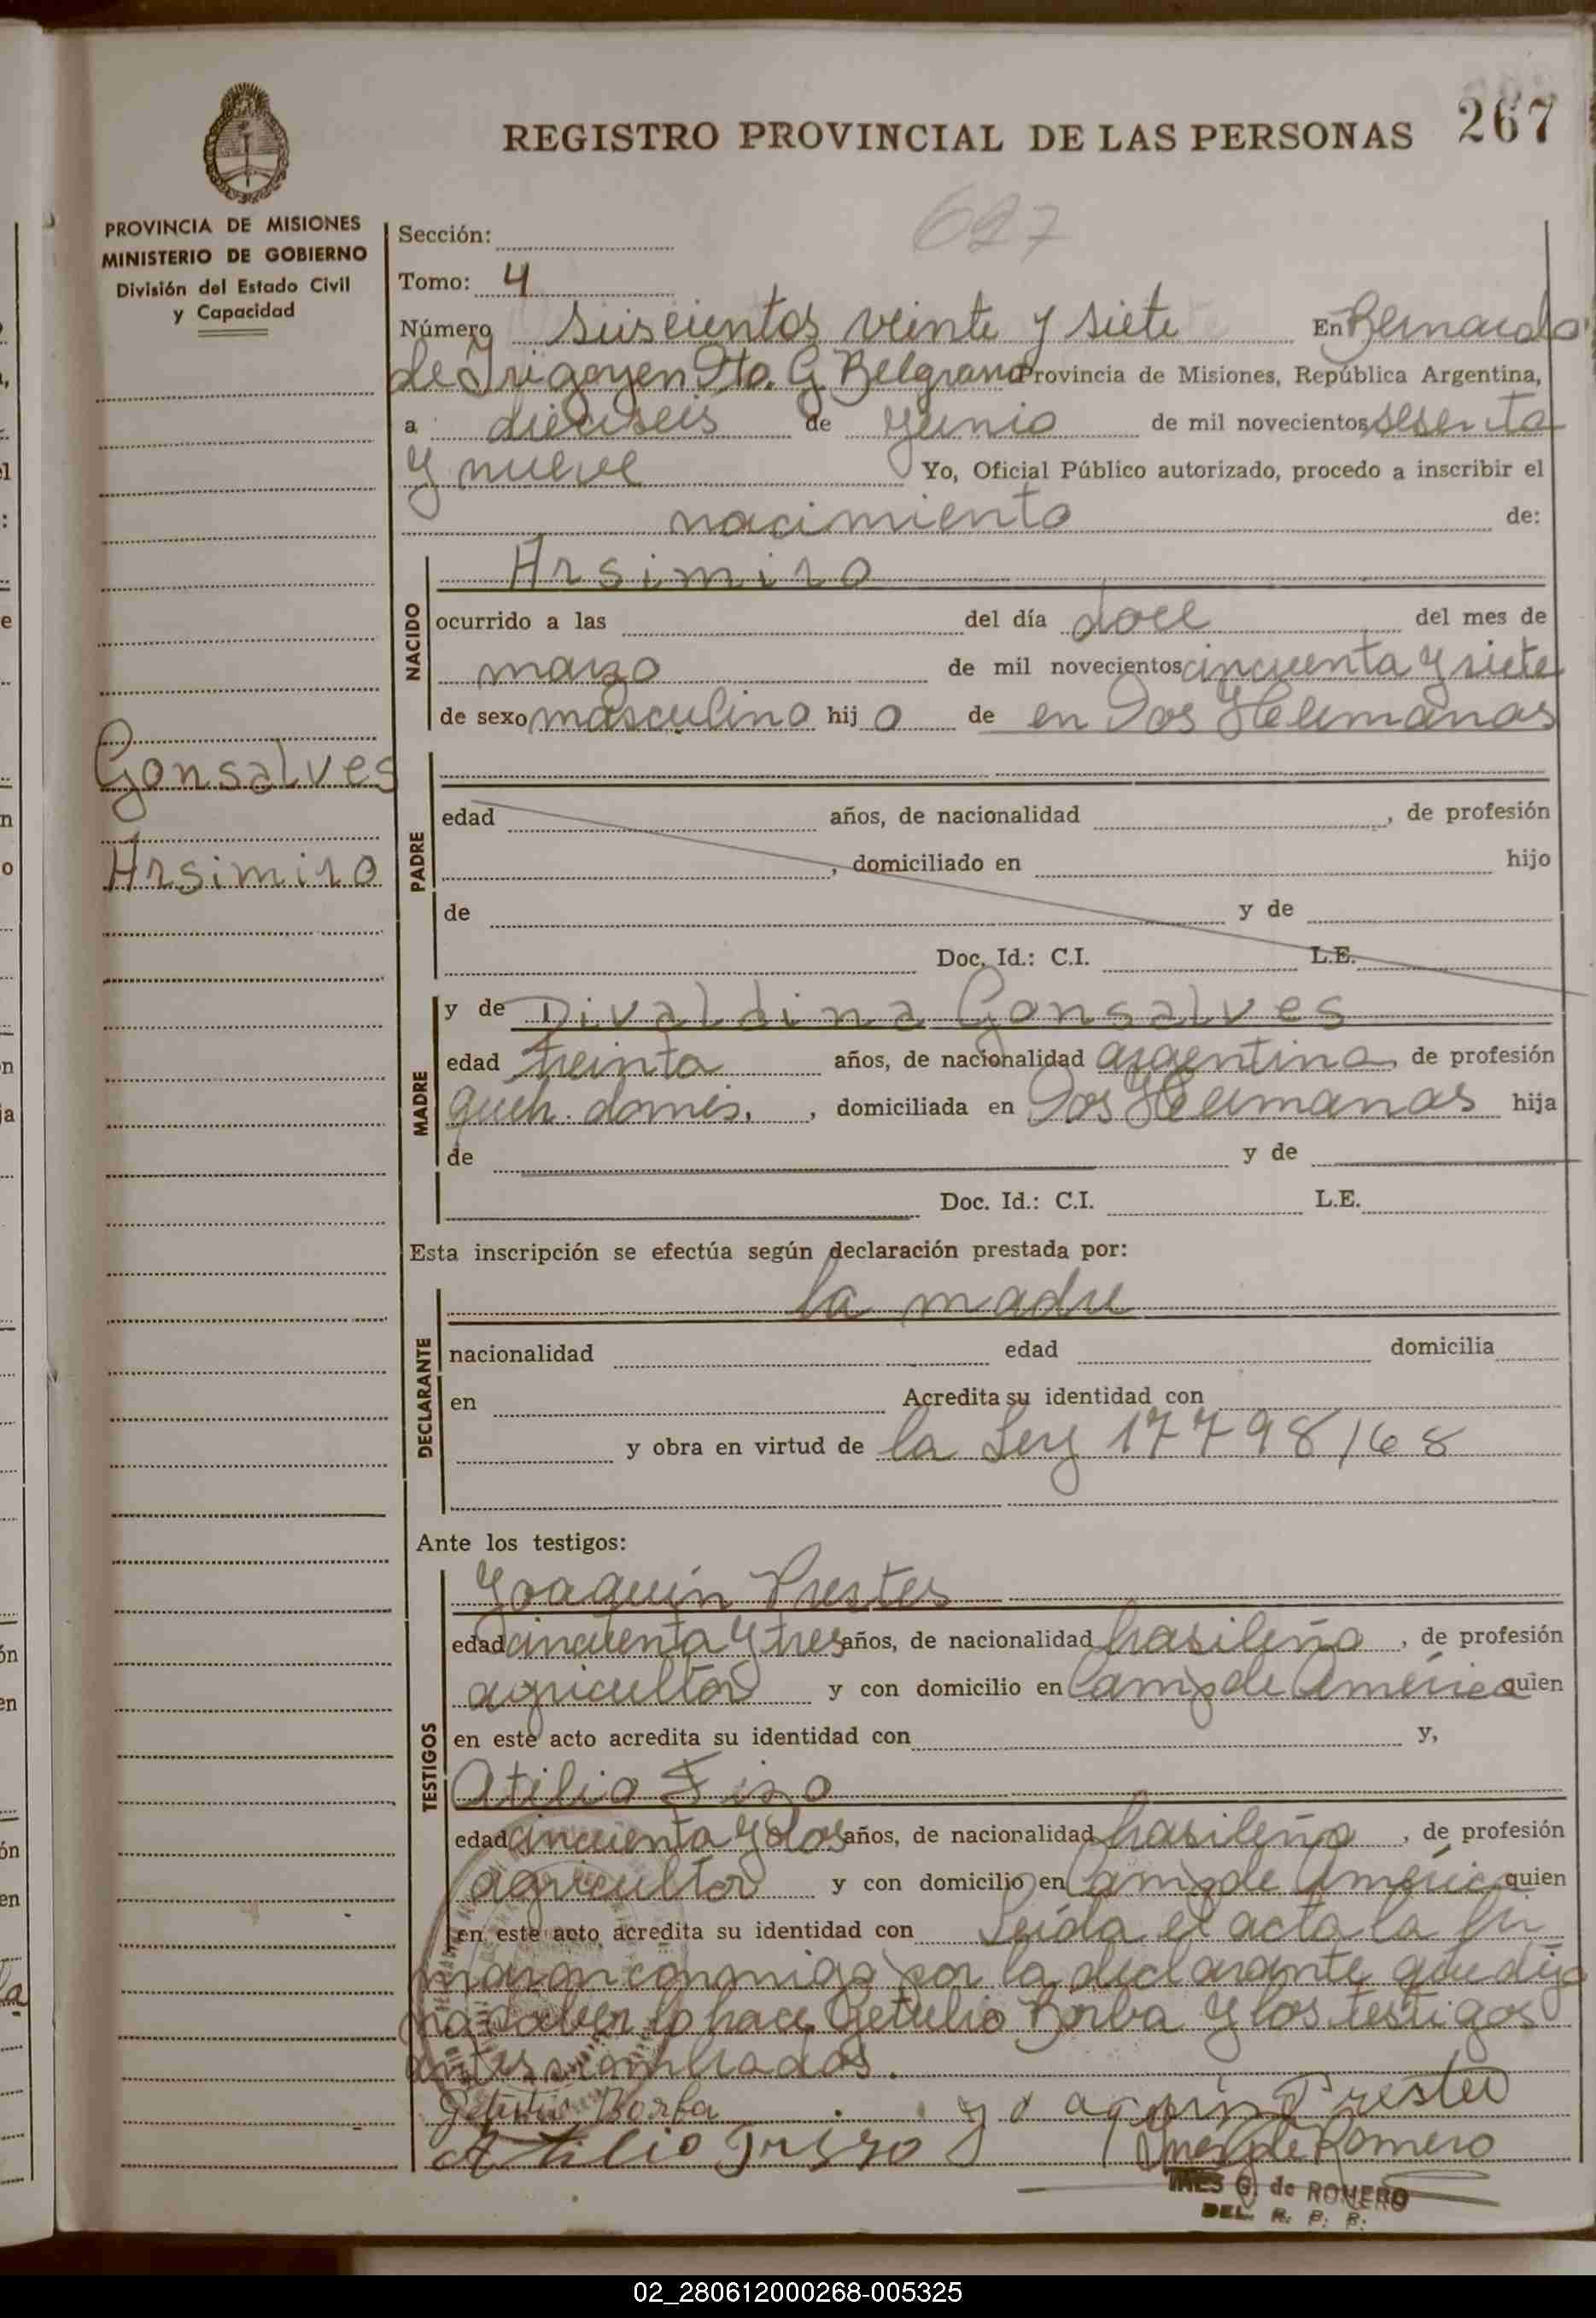 REGISTRO PROVINCIAL DE LAS PERSONAS 267
PROVINCIA DE MISIONES
MINISTERIO DE GOBIERNO
División del Estado Civil
y Capacidad
627
Sección:
Tomo: 4
Número seiscientos veinte y siete En Bernardo
de Irigoyen Dto. G Belgrano Provincia de Misiones, República Argentina,
a dieciseis de junio de mil novecientos sesenta
y nueve Yo, Oficial Público autorizado, procedo a inscribir el
nacimiento de:
Gonsalves
Arsimiro
NACIDO
Arsimiro
ocurrido a las del día doce del mes de
marzo de mil novecientos cincuenta y siete
de sexo masculino hijo de en Dos Hermanas
PADRE
edad años, de nacionalidad , de profesión
, domiciliado en hijo
de y de
Doc. Id.: C.I. L.E.
MADRE
y de Divaldina Gonsalves
edad treinta años, de nacionalidad argentina, de profesión
queh. domés. , domiciliada en Dos Hermanas hija
de y de
Doc. Id.: C.I. L.E.
Esta inscripción se efectúa según declaración prestada por:
DECLARANTE
la madre
nacionalidad edad domicilia
en Acredita su identidad con
y obra en virtud de la Ley 17798/68
Ante los testigos:
TESTIGOS
Joaquín Prestes
edad cincuenta y tres años, de nacionalidad brasileño , de profesión
agricultor y con domicilio en Camp de América quien
en este acto acredita su identidad con y,
Atilio
edad cincuenta y dos años, de nacionalidad brasileño , de profesión
agricultor y con domicilio en Camp de América quien
en este acto acredita su identidad con Leída el acta la fir
maron conmigo por la declarante que dijo
no saber lo hace Getulio Borba y los testigos
antes nombrados.
Getulio Borba Joaquin Prestes
Atilio Ines G de Romero
INES G. de ROMERO
DEL. R. P. P.
02_280612000268-005325